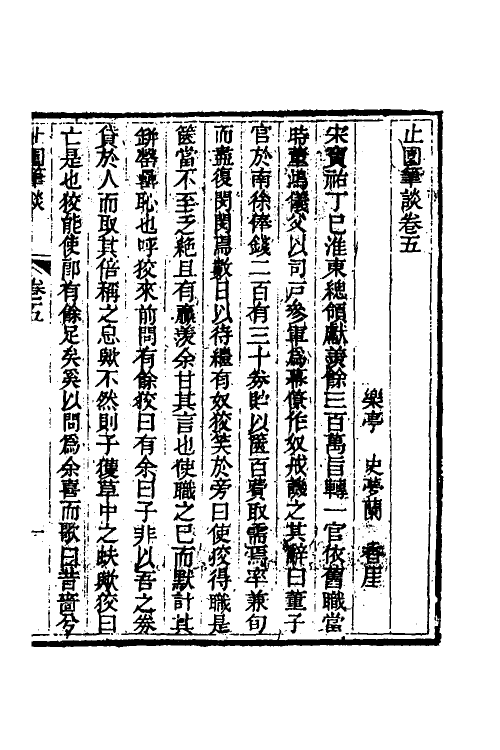 止園筆談卷五
樂亭　史夢蘭　香崖
宋寶祐丁巳淮東總領獻羨餘三百萬旨轉一官依舊職當
時董鴻儀父以司戶參軍爲幕僚作奴戒譏之其辭曰董子
官於南徐俸錢二百有三十券貯以篋百費取需焉率兼旬
而盡復閔閔焉數日以待繼有奴狡笑於旁曰使狡得職是
篋當不至乏絶且有羸羨余甘其言也使職之已而默計其
缾罄罍恥也呼狡來前問有餘狡曰有余曰子非以吾之券
貸於人而取其倍稱之息歟不然則子獲草中之蚨歟狡曰
亡是也狡能使郎有餘足矣奚以問爲余喜而歌曰昔嗇兮
止園筆談
卷五
一